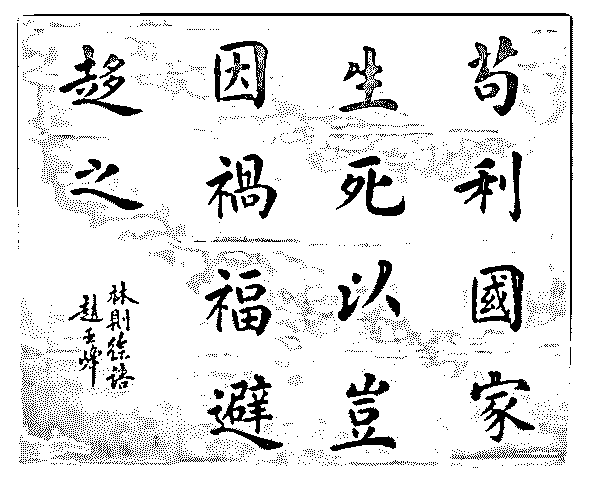 苟利國家
生死以豈
因禍福避
趍之
林則徐語
趙玉